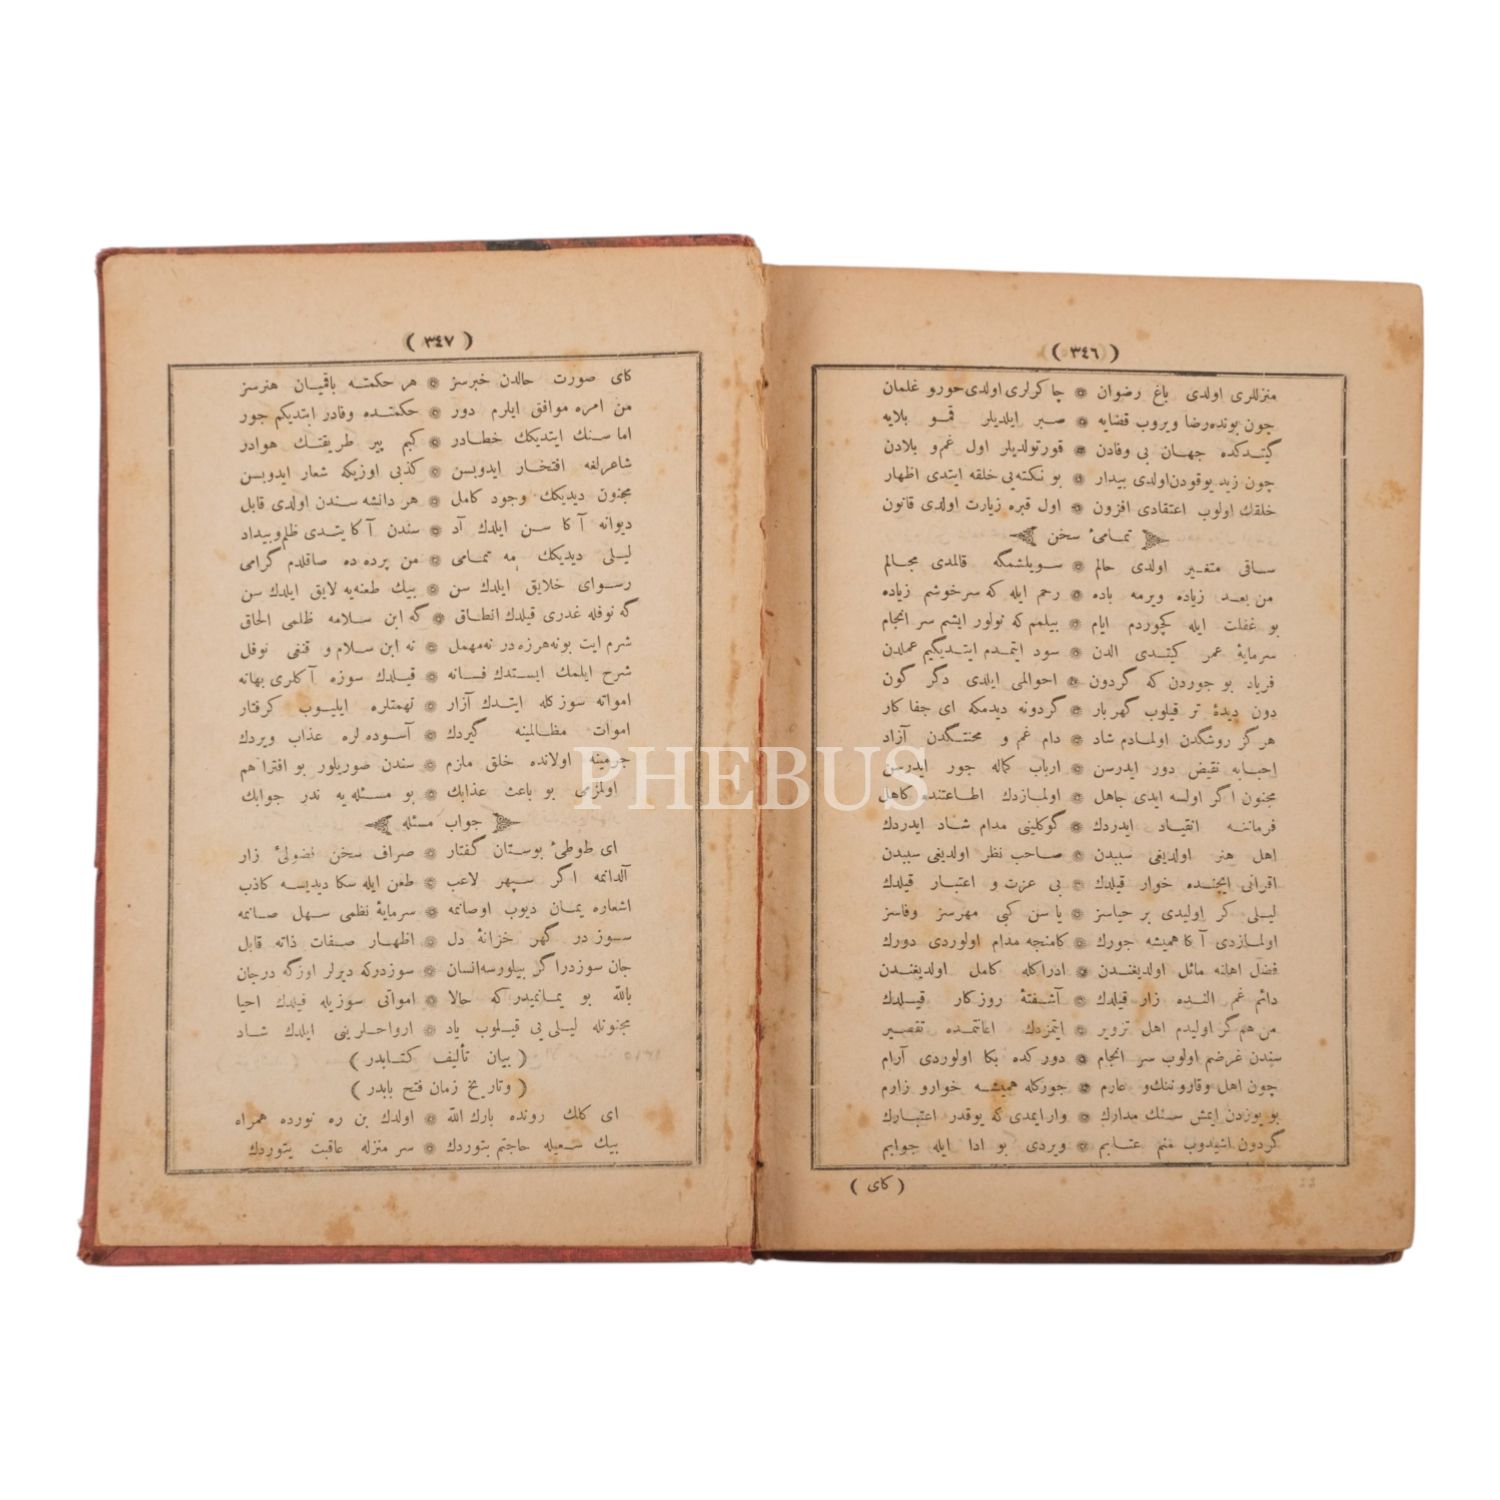 ( ٣٤٦ )
منزللری اولدی باغ رضوان ❁ چاکرلری اولدی حورو غلمان
چون بونده رضا ویروب قضایه ❁ صبر ایلدیلر قمو بلایه
گیتدکده جهان بی وفادن ❁ قورتولدیلر اول غم و بلادن
چون زید یوقودن اولدی بیدار ❁ بو نکته یی خلقه ایتدی اظهار
خلقك اولوب اعتقادی افزون ❁ اول قبره زیارت اولدی قانون
تمامئ سخن
ساقی متغیر اولدی حالم ❁ سویلشمگه قالمدی مجالم
من بعد زیاده ویرمه باده ❁ رحم ایله که سرخوشم زیاده
بو غفلت ایله کچوردم ایام ❁ بیلمم که نولور ایشم سر انجام
سرمایهٔ عمر کیتدی الدن ❁ سود ایتمدم ایتدیگیم عملدن
فریاد بو جوردن که گردون ❁ احوالمی ایلدی دگر گون
دون دیدهٔ تر قیلوب گهر بار ❁ گردونه دیدمکه ای جفا کار
هرگز روشگدن اولمادم شاد ❁ دام غم و محنتگدن آزاد
احبابه نقیض دور ایدرسن ❁ ارباب کماله جور ایدرسن
مجنون اگر اولسه ایدی جاهل ❁ اولمازدك اطاعتنده کاهل
فرماننه انقیاد ایدردك ❁ گوکلینی مدام شاد ایدردك
اهل هنر اولدیغی سببدن ❁ صاحب نظر اولدیغی سببدن
اقرانی ایچنده خوار قیلدك ❁ بی عزت و اعتبار قیلدك
لیلی کر اولیدی بر حیاسز ❁ یا سن کبی مهرسز وفاسز
اولمازدی آکا همیشه جورك ❁ کامنجه مدام اولوردی دورك
فضل اهلنه مائل اولدیغندن ❁ ادراکله کامل اولدیغندن
دائم غم النده زار قیلدك ❁ آشفتهٔ روزکار قیلدك
من هم گر اولیدم اهل تزویر ❁ ایتمزدك اعانتمده تقصیر
سندن غرضم اولوب سر انجام ❁ دورکده بکا اولوردی آرام
چون اهل وقاروننك و عارم ❁ جورکله همیشه خوارو زارم
بو یوزدن ایمش سنك مدارك ❁ وار ایمدی که یوقدر اعتبارك
گردون اشیدوب منم عتابم ❁ ویردی بو ادا ایله جوابم
( کای )
( ٣٤٧ )
کای صورت حالدن خبرسز ❁ هر حکمته باقمیان هنرسز
من امره موافق ایلرم دور ❁ حکمتده وفادر ایتدیکم جور
اما سنك ایتدیکك خطادر ❁ کیم پیر طریقتك هوادر
شاعرلغه افتخار ایدوبسن ❁ کذبی اوزیکه شعار ایدوبسن
مجنون دیدیکك وجود کامل ❁ هر دانشه سندن اولدی قابل
دیوانه آکا سن ایلدك آد ❁ سندن آکا یتدی ظلم و بیداد
لیلی دیدیکك مه تمامی ❁ من پرده ده صاقلدم گرامی
رسوای خلایق ایلدك سن ❁ بیك طعنه یه لایق ایلدك سن
که نوفله غدری قیلدك انطاق ❁ که ابن سلامه ظلمی الحاق
شرم ایت بونه هرزه در نه مهمل ❁ نه ابن سلام و قنغی نوفل
شرح ایلمك ایستدك فسانه ❁ قیلدك سوزه آکلری بهانه
امواته سوزکله ایتدك آزار ❁ تهمتلره ایلیوب کرفتار
اموات مظالمینه گیردك ❁ آسوده لره عذاب ویردك
جرمینه اولانده خلق ملزم ❁ سندن صوریلور بو افترا هم
اولمزمی بو باعث عذابك ❁ بو مسئله یه ندر جوابك
جواب مسئله
ای طوطئ بوستان گفتار ❁ صراف سخن فضولئ زار
آلدانمه اگر سپهر لاعب ❁ طعن ایله سکا دیدیسه کاذب
اشعاره یمان دیوب اوصانمه ❁ سرمایهٔ نظمی سهل صانمه
سوزدر گهر خزانهٔ دل ❁ اظهار صفات ذاته قابل
جان سوزدر اگر بیلورسه انسان ❁ سوزدرکه دیرلر اوزگه درجان
بالله بو یمانمیدر که حالا ❁ امواتی سوزیله قیلدك احیا
مجنونله لیلی یی قیلوب یاد ❁ ارواحلرینی ایلدك شاد
( بیان تألیف کتابدر )
( وتاریخ زمان فتح بابدر )
ای کلك رونده بارك الله ❁ اولدك بن ره نورده همراه
بیك سعیله حاجتم بتوردك ❁ سر منزله عاقبت یتوردك
PHEBUS